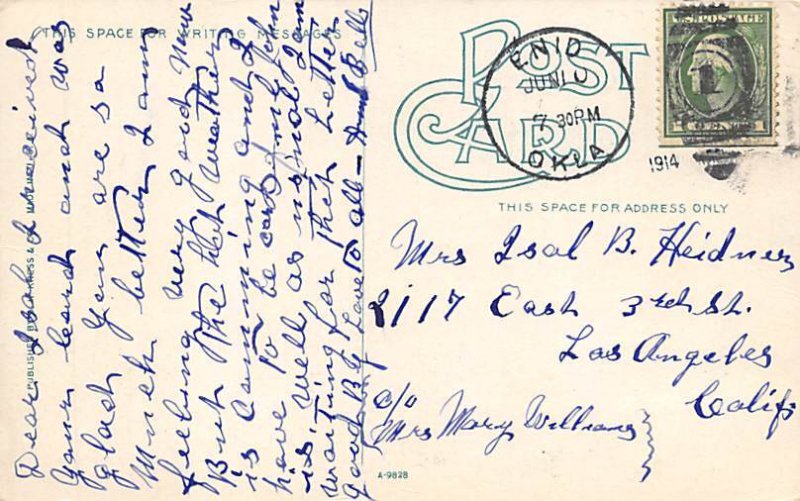 THIS SPACE FOR WRITING MESSAGES
Dear Isal I received
your card and was
glad you are so
Much better I am
feeling very good now
But the hot weather
is Comming and I
have to be card ful John
is, well as usual I am
waiting for that Letter
Good By Love To all - Aunt Belle
PUBLISHED BY S. H. KRESS & Co.
POST CARD
ENID
JUN 10
7-30PM
OKLA
1914
U.S. POSTAGE
1
THIS SPACE FOR ADDRESS ONLY
Mrs Isal B. Heidner
2117 East 3rd St.
Los Angeles
Calif
c/o
Mrs Mary Williams
A-9828